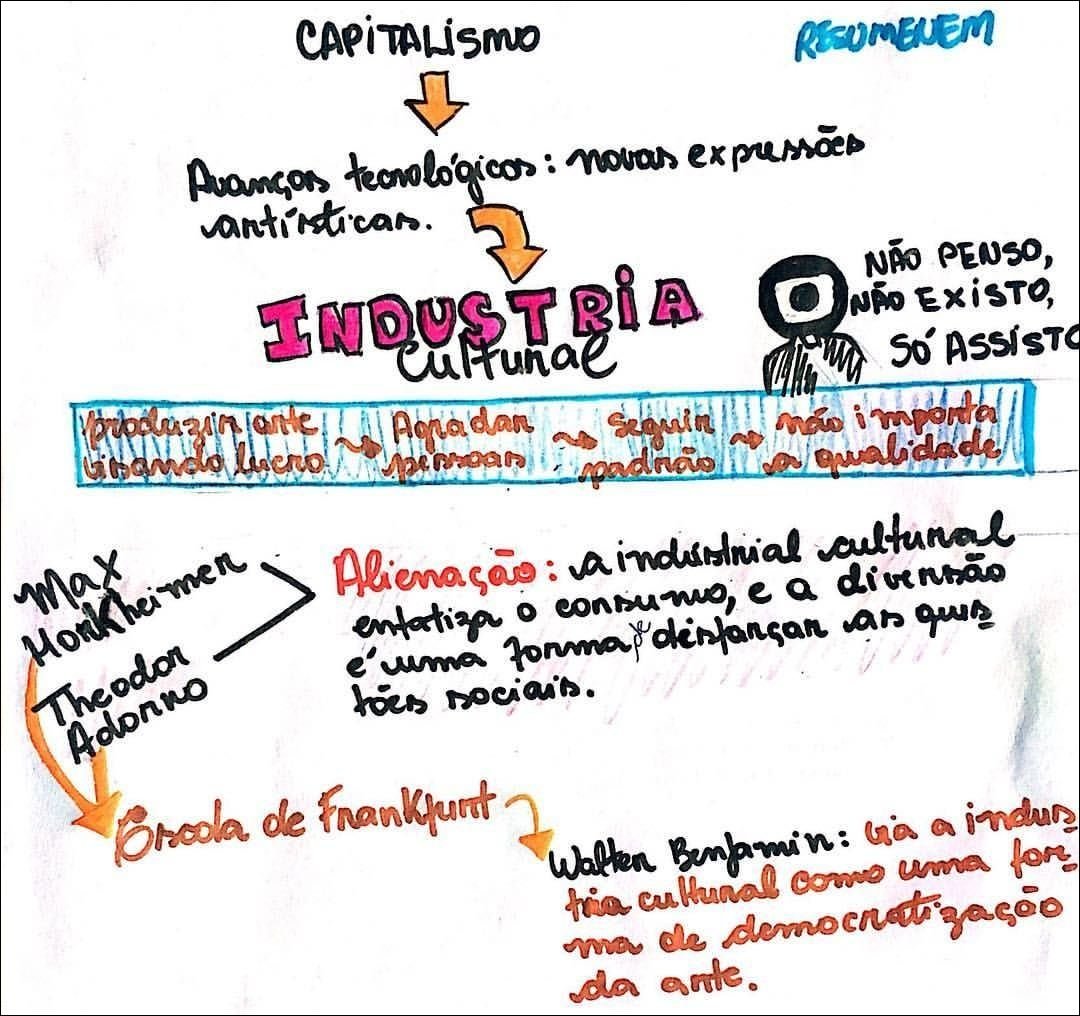 CAPITALISMO
RESUMENEM
Avanços tecnológicos: novas expressões
artísticas.
INDUSTRIA
Cultural
NÃO PENSO,
NÃO EXISTO,
SÓ ASSISTO
produzir arte
visando lucro
Agradar
pessoas
Seguir
padrão
não importa
a qualidade
Max
Horkheimer
Theodor
Adorno
Alienação: a indústrial cultural
enfatiza o consumo, e a diversão
é uma forma de disfarçar as ques
tões sociais.
Escola de Frankfurt
Walter Benjamin: Via a indus
tria cultural como uma for
ma de democratização
da arte.